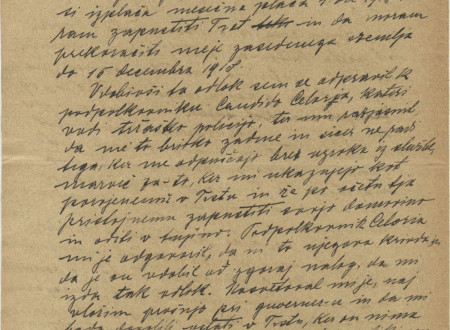 ti izplača mesečna plača
ram zapustiti Trst in da moram
prekoračiti meje zasedenega ozemlja
do 15 decembra 1918.
Vdobivši ta odlok sem se odpravil k
podpolkovniku Candido Celoria, kateri
vodi tržaško policijo, ter mu razjasnil,
da me to britko zadene in sicer ne radi
tega, ker me odpuščajo brez vzroka iz službe,
marveč za-to, ker mi ukazujejo kot
v Trstu in že po očetu tja
pristojnemu zapustiti svojo domovino
in oditi v tujino. Podpolkovnik Celoria
mi je odgovoril, da ni to njegova krivda in
da je on vdobil od zgoraj nalog, da mi
izda tak odlok. Nasvetoval mi je, naj
vložim prošnjo pri guverner-u in da mi
bode dovolil ostati v Trstu, ker on nima